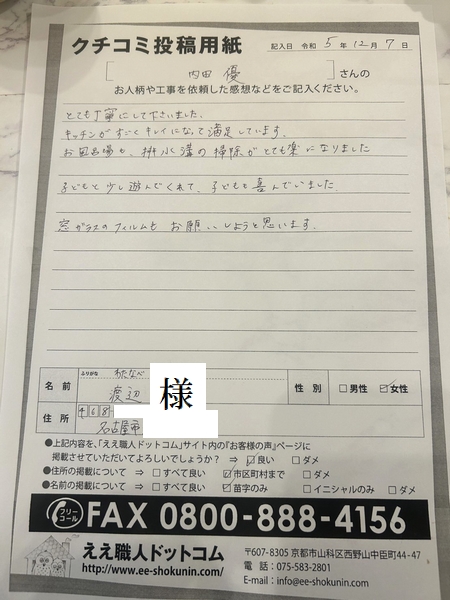 クチコミ投稿用紙
記入日 令和 5 年 12 月 7 日
[ 内田 優 ] さんの
お人柄や工事を依頼した感想などをご記入ください。
とても丁寧にして下さいました。
キッチンがすごくキレイになって満足しています。
お風呂場も、排水溝の掃除がとても楽になりました
子どもと少し遊んでくれて、子どもも喜んでいました。
窓ガラスのフィルムも お願いしようと思います。
ふりがな わたなべ
名前 渡辺 様 性別 □男性 ☑女性
住所 468-
名古屋市
●上記内容を、「ええ職人ドットコム」サイト内の『お客様の声』ページに
掲載させていただいてよろしいでしょうか? ⇒ ☑良い □ダメ
●住所の掲載について ⇒ □すべて良い ☑市区町村まで □ダメ
●名前の掲載について ⇒ □すべて良い ☑苗字のみ □イニシャルのみ □ダメ
フリーコール FAX 0800-888-4156
ええ職人ドットコム
http://www.ee-shokunin.com/
〒607-8305 京都市山科区西野山中臣町44-47
電話:075-583-2801
E-mail:info@ee-shokunin.com